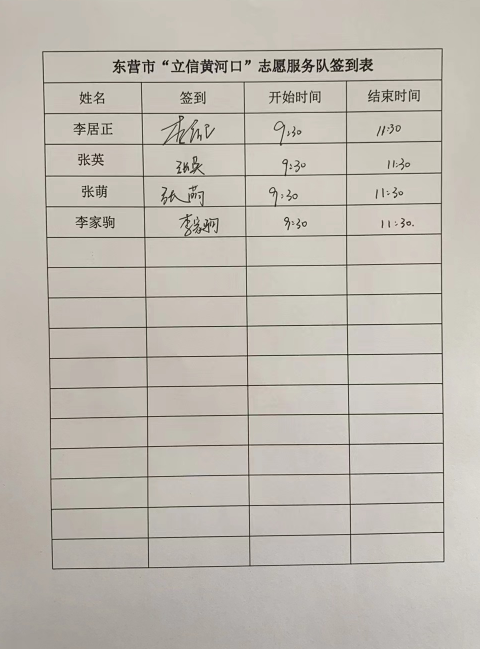 东营市“立信黄河口”志愿服务队签到表
姓名 签到 开始时间 结束时间
李居正 9:30 11:30
张英 张英 9:30 11:30
张萌 张萌 9:30 11:30
李家驹 李家驹 9:30 11:30.